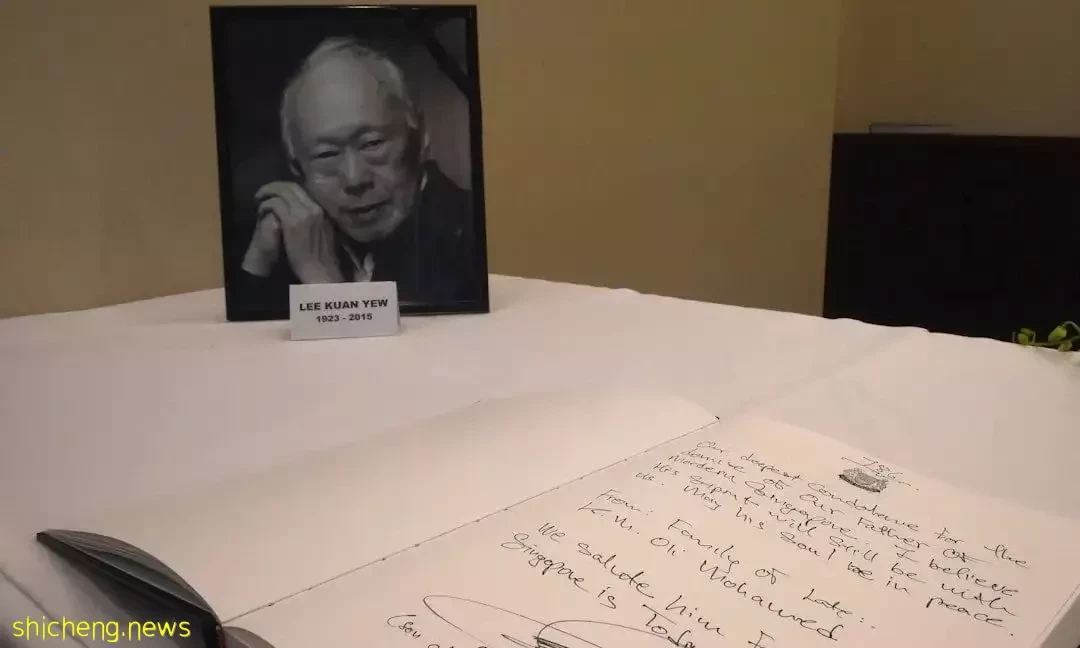 LEE KUAN YEW
1923 - 2015
Our deepest Condolence for the
demise of Our Father of
Mordern Singapore. I believe
His spirit will still be with
us. May his Soul be in peace.
From: Family of Late:
K.M. Oli Mohamed
We salute him
Singapore is
(son
shicheng.news